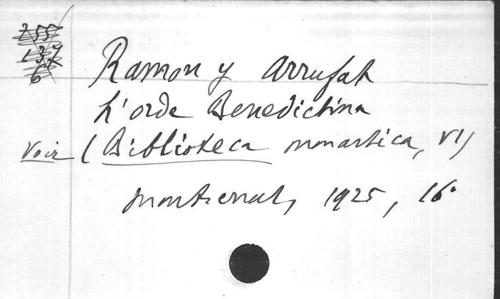 255
137
6
Ramon y Arrufat
L'orde Benedictina
Voir (Biblioteca monastica, VI)
Montserrat, 1925, 16°